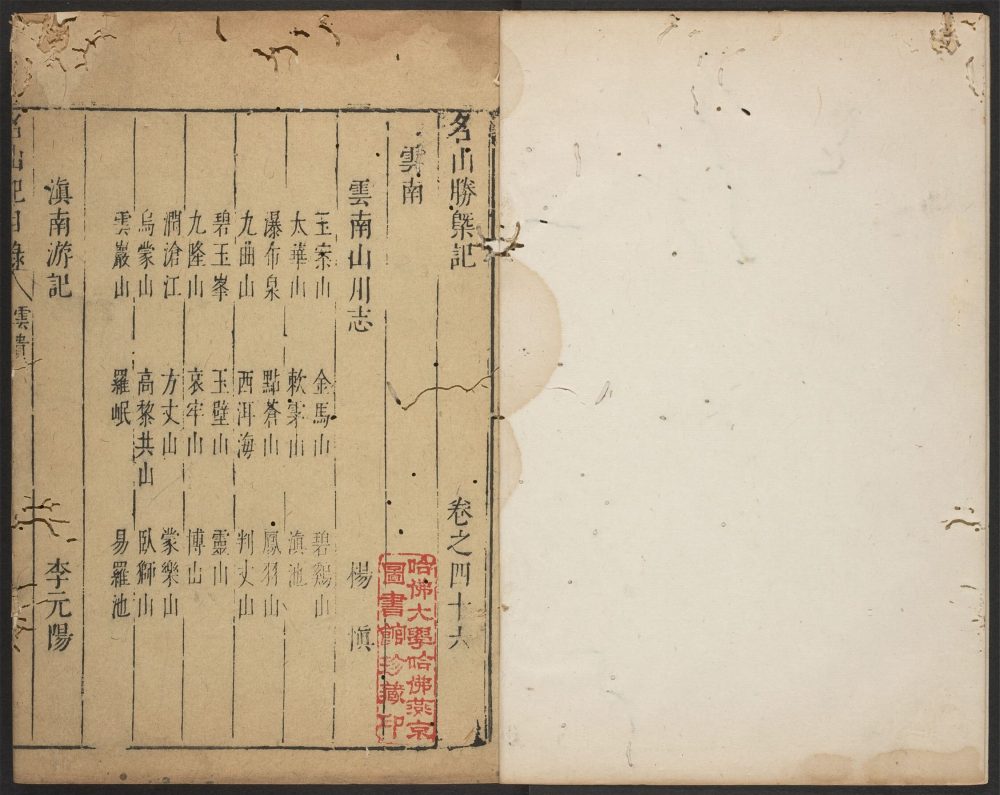 名山勝槩記 卷之四十六
雲南
雲南山川志 楊慎
玉案山 金馬山 碧鷄山
太華山 軟雲山 滇池
瀑布泉 點蒼山 鳳羽山
九曲山 西洱海 判丈山
碧玉峯 玉壁山 靈山
九隆山 哀牢山 博山
瀾滄江 方丈山 蒙樂山
烏蒙山 高黎共山 臥獅山
雲巖山 羅岷 易羅池
滇南游記 李元陽
名山記目錄 雲貴
哈佛大學哈佛燕京
圖書館珍藏印